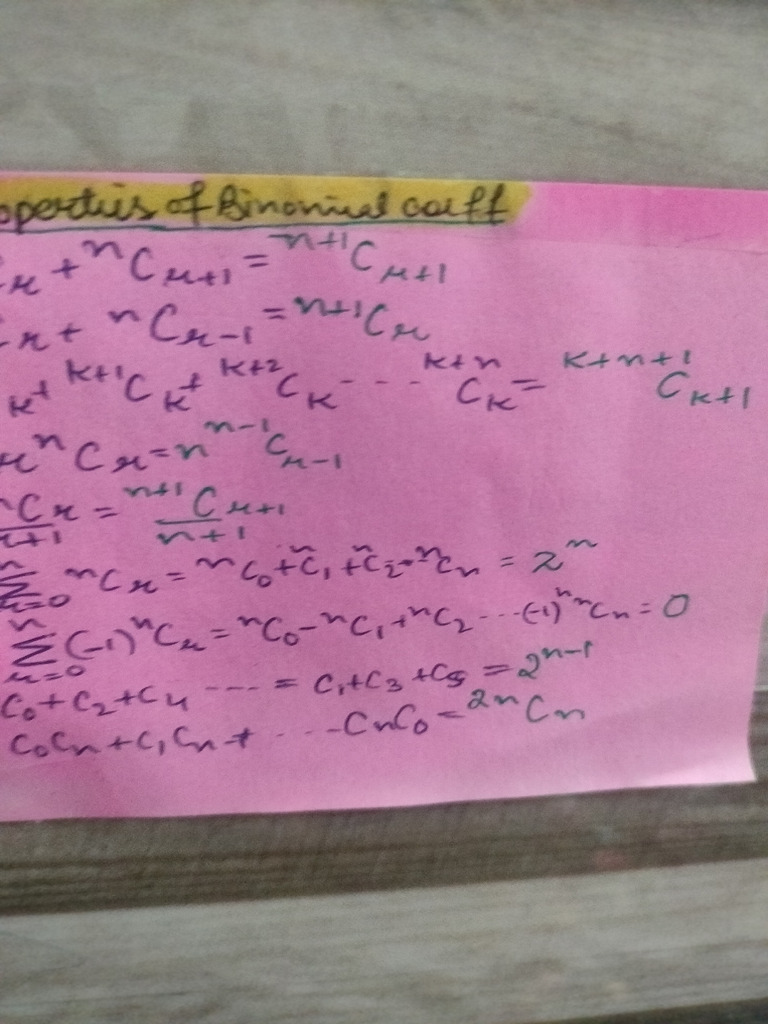 operties of Binomial coeff
Cr + ⁿCr+1 = ⁿ⁺¹Cr+1
Cr + ⁿCr-1 = ⁿ⁺¹Cr
k + ᵏ⁺¹Ck + ᵏ⁺²Ck --- ᵏ⁺ⁿCk = ᵏ⁺ⁿ⁺¹Ck+1
r ⁿCr = n ⁿ⁻¹Cr-1
ⁿCr/r+1 = ⁿ⁺¹Cr+1/n+1
ⁿΣr=0 ⁿCr = ⁿC0 + ⁿC1 + ⁿC2 -- ⁿCn = 2ⁿ
ⁿΣr=0 (-1)ⁿCr = ⁿC0 - ⁿC1 + ⁿC2 --- (-1)ⁿ ⁿCn = 0
C0 + C2 + C4 ---- = C1 + C3 + C5 = 2ⁿ⁻¹
C0Cn + C1Cn- + ---- CnC0 = ²ⁿCn